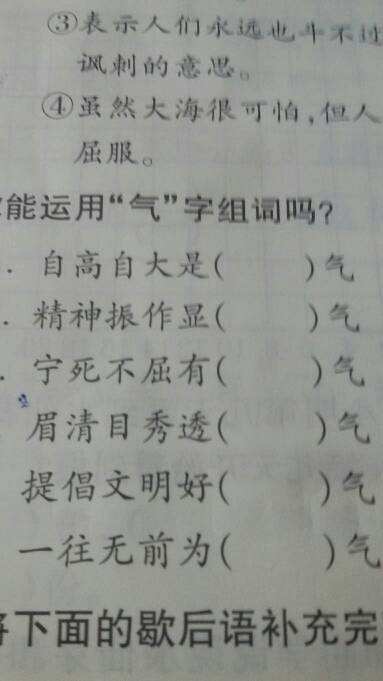 ③表示人们永远也斗不过
讽刺的意思。
④虽然大海很可怕，但人
屈服。
能运用“气”字组词吗？
. 自高自大是(    )气
. 精神振作显(    )气
. 宁死不屈有(    )气
眉清目秀透(    )气
提倡文明好(    )气
一往无前为(    )气
将下面的歇后语补充完